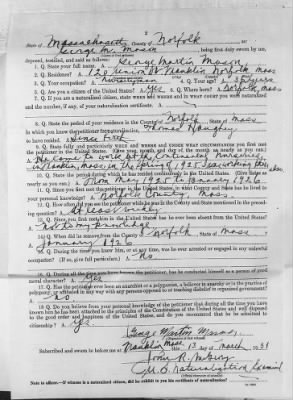 2
State of Massachusetts County of Norfolk ss:
George M. Mason, being first duly sworn by me,
deposed, testified, and said as follows:
1. Q. State your full name. A. George Martin Mason
2. Q. Residence? A. 120 Union St Franklin Norfolk Mass
3. Q. Occupation? A. Nurseryman 4. Q. Your age? A.
5. Q. Are you a citizen of the United States? A. Yes 6. Q. Where born? A. Norfolk, Mass
7. Q. If you are a naturalized citizen, state when and where and in what court you were naturalized
and the number, if any, of your naturalization certificate. A.
8. Q. State the period of your residence in the County of Norfolk State of Mass
in which you know the petitioner for naturalization, Thomas
to have resided. A. Since birth
9. Q. State fully and particularly when and where and under what circumstance you first met
the petitioner in the United States. (Give year, month, and day of the month, as nearly as you can.)
A. He came to work at the Continental Nurseries
in Franklin, Mass. in the Spring of 1925.
10. Q. State the period during which he has resided continuously in the United States. (Give dates as
nearly as you can.) A. From May 1925 to January 1926
11. Q. Since you first met the petitioner in the United States, in what County and State has he lived to
your personal knowledge? A. Norfolk County, Mass
12. Q. How often did you see the petitioner while you in the County and State mentioned in the preced-
ing question? A. At least weekly
13. Q. Since you first met him in the United States has he ever been absent from the United States?
A. Not to my knowledge
14. Q. When did he remove from the County of Norfolk, State of Mass
A. January 1926
15. Q. During the time you knew him, or at any time, was he ever arrested or engaged in any unlawful
occupation? (If so, give full particulars.) A. No
16. Q. During all the time you have known the petitioner, has he conducted himself as a person of good
moral character? A. Yes
17. Q. Has the petitioner ever been an anarchist or a polygamist, a believer in anarchy or in the practice of
polygamy, or affiliated in any way with any persons opposed to or teaching disbelief in organized government?
A. No
18. Q. Do you believe from your personal knowledge of the petitioner that during all the time you have
known him he has been attached to the principles of the Constitution of the United States and well disposed
to the good order and happiness of the United States, and do you recommend that he be admitted to
citizenship? A. Yes
George Martin Mason
Subscribed and sworn to before me at Franklin Mass this 13 day of March 1931
U.S. Naturalization Examiner
Note to officer.—If witness is a naturalized citizen, did he exhibit to you his certificate of naturalization?